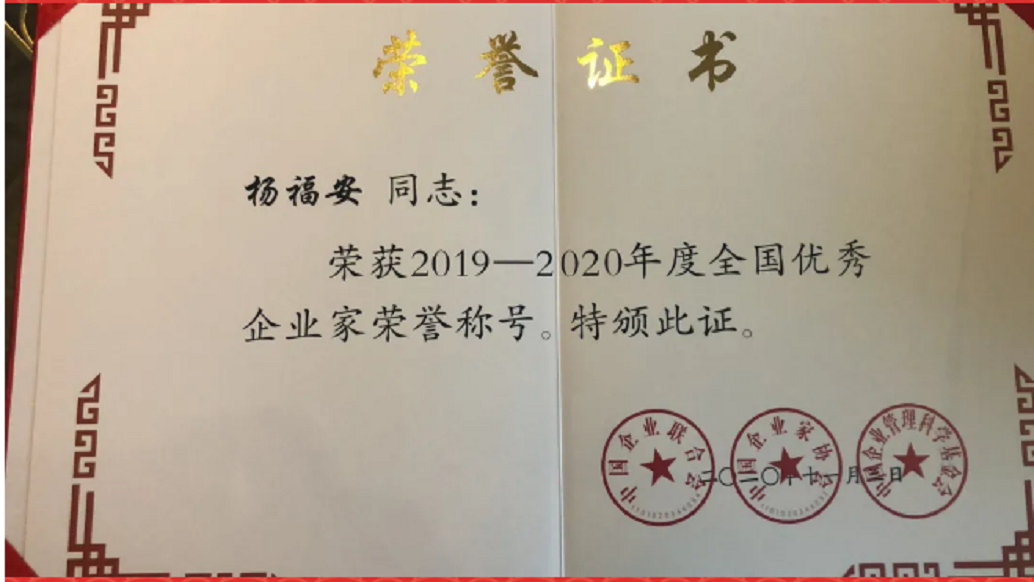 荣誉证书
杨福安 同志：
荣获2019—2020年度全国优秀
企业家荣誉称号。特颁此证。
中国企业联合会
中国企业家协会
中国企业管理科学基金会
二〇二〇年十一月二日